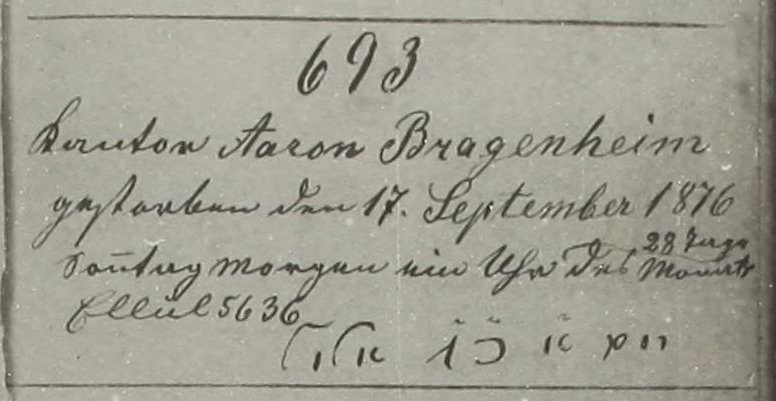 693
Kantor Aaron Bragenheim
gestorben den 17. September 1876
28 Tage
Sontag Morgen ein Uhr des Monats
Ellul 5636